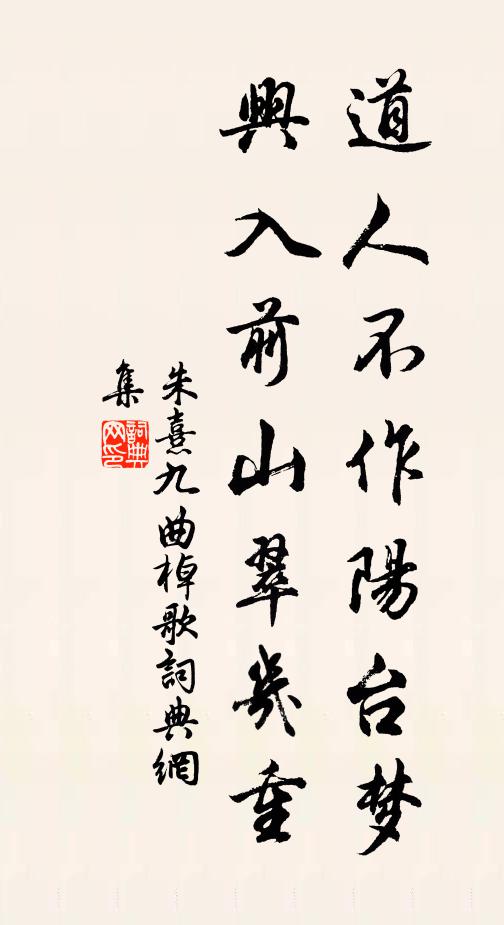 道人不作陽台梦
興入前山翠幾重
朱熹九曲棹歌詞典網
集
詞典网印